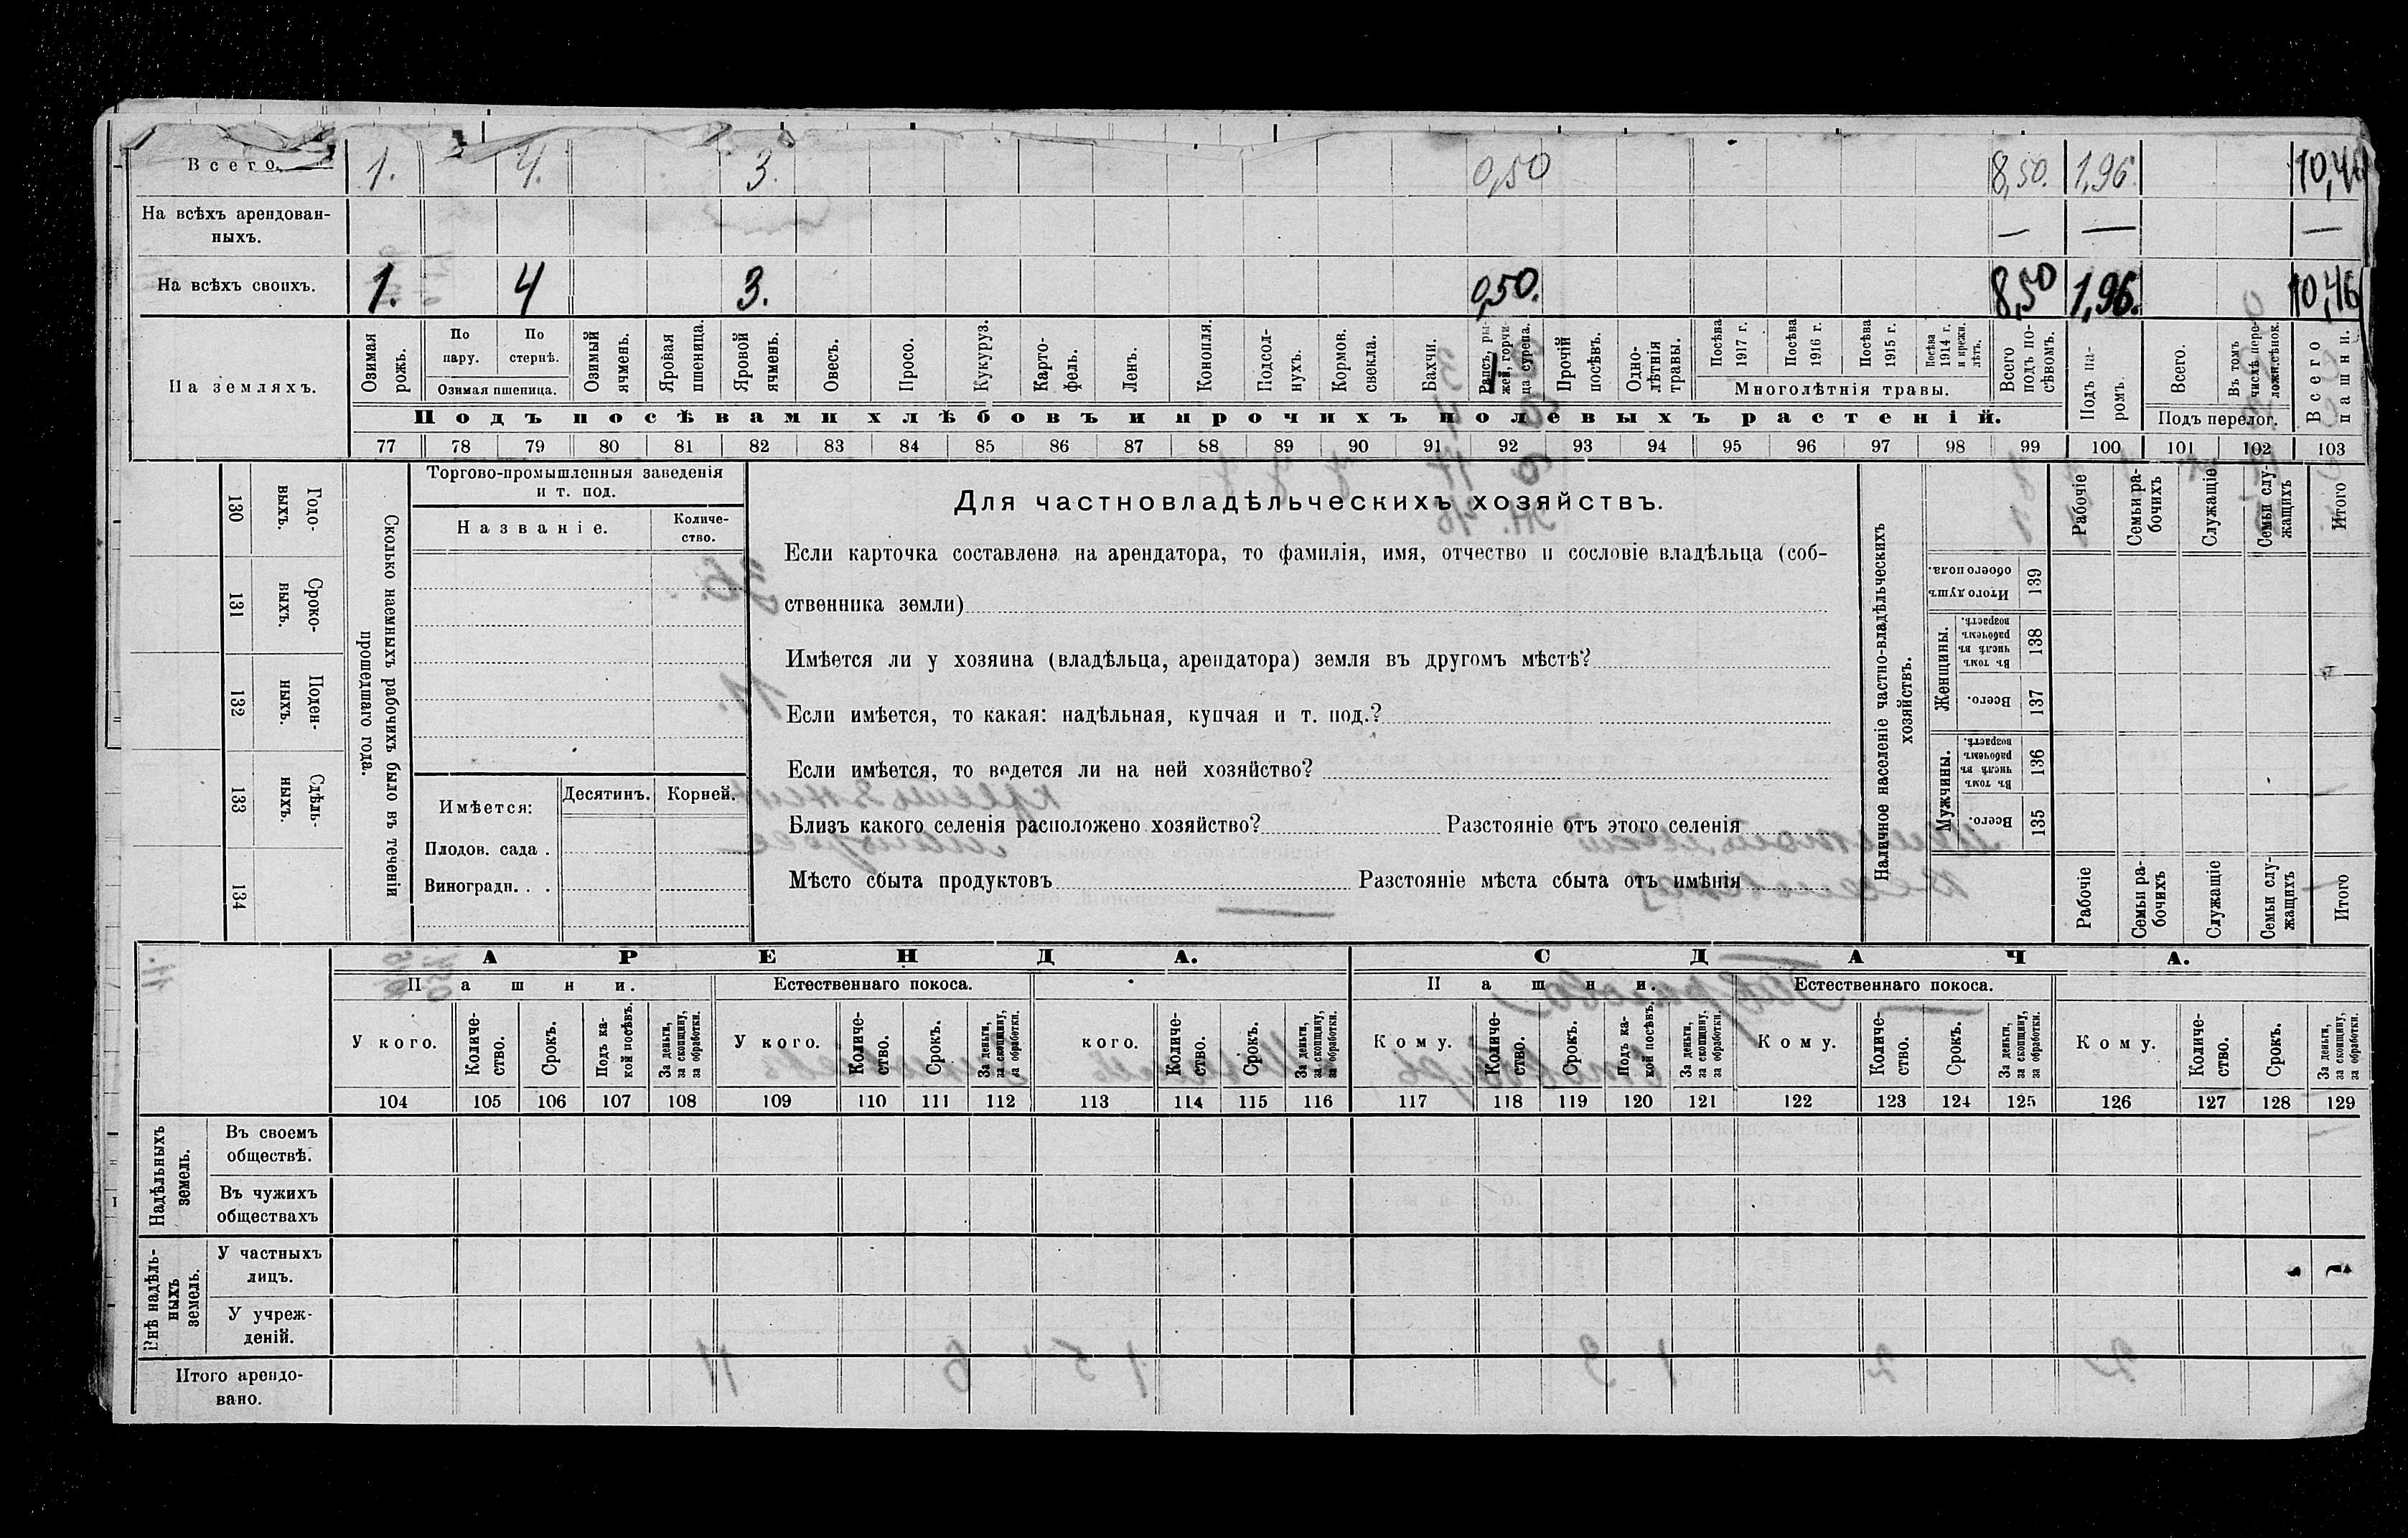 Всего. 1. 4. 3. 0,50 8,50. 1,96. 10,46
На всѣхъ арендован-
ныхъ. — — —
На всѣхъ своихъ. 1. 4 3. 0,50. 8,50 1,96. 10,46
На земляхъ.
Озимая рожь.
По пару.
По стернѣ.
Озимая пшеница.
Озимый ячмень.
Яровая пшеница.
Яровой ячмень.
Овесъ.
Просо.
Кукуруз.
Карто-
фель.
Ленъ.
Конопля.
Подсол-
нухъ.
Кормов. свекла.
Бахчи.
Рапсъ, ры-
жей, горчи-
ца, сурепа.
Прочій посѣвъ.
Одно-
лѣтнія травы.
Посѣва 1917 г.
Посѣва 1916 г.
Посѣва 1915 г.
Посѣва 1914 г. и прежн. лѣтъ.
Многолѣтнія травы.
Всего подъ по-
сѣвомъ.
Подъ па-
ромъ.
Всего.
Въ томъ числѣ пере-
ложн.сѣнок.
Подъ перелог.
Всего пашни.
Подъ посѣвами хлѣбовъ и прочихъ полевыхъ растеній.
77 78 79 80 81 82 83 84 85 86 87 88 89 90 91 92 93 94 95 96 97 98 99 100 101 102 103
130 Годо-
выхъ.
131 Сроко-
выхъ.
132 Поден-
ныхъ.
133 Сдѣль-
ныхъ.
134
Сколько наемныхъ рабочихъ было въ теченіи
прошедшаго года.
Торгово-промышленныя заведенія
и т. под.
Названіе.
Количе-
ство.
Имѣется:
Десятинъ.
Корней.
Плодов. сада .
Виноградн. . .
Для частновладѣльческихъ хозяйствъ.
Если карточка составлена на арендатора, то фамилія, имя, отчество и сословіе владѣльца (соб-
ственника земли)
Имѣется ли у хозяина (владѣльца, арендатора) земля въ другомъ мѣстѣ?
Если имѣется, то какая: надѣльная, купчая и т. под.?
Если имѣется, то ведется ли на ней хозяйство?
Близъ какого селенія расположено хозяйство? Разстояніе отъ этого селенія
Мѣсто сбыта продуктовъ Разстояніе мѣста сбыта отъ имѣнія
Наличное населеніе частно-владѣльческихъ
хозяйствъ.
Рабочіе
Семьи ра-
бочихъ
Служащіе
Семьи слу-
жащихъ
Итого
Итого душъ
обоего пола.
139
Женщины.
Въ томъ числѣ въ рабочемъ возрастѣ.
138
Всего.
137
Мужчины.
Въ томъ числѣ въ рабочемъ возрастѣ.
136
Всего.
135
Рабочіе
Семьи ра-
бочихъ
Служащіе
Семьи слу-
жащихъ
Итого
АРЕНДА. СДАЧА.
Пашни. Естественнаго покоса. Пашни. Естественнаго покоса.
У кого.
Количе-
ство.
Срокъ.
Подъ ка-
кой посѣвъ.
За деньги,
за скопщину,
за обработки.
У кого.
Количе-
ство.
Срокъ.
За деньги,
за скопщину,
за обработки.
кого.
Количе-
ство.
Срокъ.
За деньги,
за скопщину,
за обработки.
Кому.
Количе-
ство.
Срокъ.
Подъ ка-
кой посѣвъ.
За деньги,
за скопщину,
за обработки.
Кому.
Количе-
ство.
Срокъ.
За деньги,
за скопщину,
за обработки.
Кому.
Количе-
ство.
Срокъ.
За деньги,
за скопщину,
за обработки.
104 105 106 107 108 109 110 111 112 113 114 115 116 117 118 119 120 121 122 123 124 125 126 127 128 129
Надѣльныхъ
земель.
Въ своемъ
обществѣ.
Въ чужихъ
обществахъ
Внѣ надѣль-
ныхъ
земель.
У частныхъ
лицъ.
У учреж-
деній.
Итого арендо-
вано.